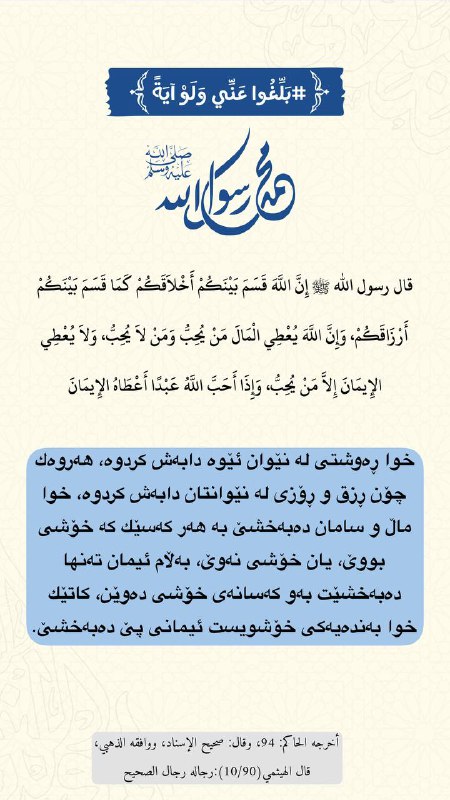 #بَلِّغُوا عَنِّي وَلَوْ آيَةً
محمد رسول الله
صلى الله عليه وسلم
قال رسول الله ﷺ إِنَّ اللَّهَ قَسَمَ بَيْنَكُمْ أَخْلاَقَكُمْ كَمَا قَسَمَ بَيْنَكُمْ
أَرْزَاقَكُمْ، وَإِنَّ اللَّهَ يُعْطِي الْمَالَ مَنْ يُحِبُّ وَمَنْ لاَ يُحِبُّ، وَلاَ يُعْطِي
الإِيمَانَ إِلاَّ مَنْ يُحِبُّ، وَإِذَا أَحَبَّ اللَّهُ عَبْدًا أَعْطَاهُ الإِيمَانَ
خوا ڕەوشتی لە نێوان ئێوە دابەش کردوە، هەروەك
چۆن ڕزق و ڕۆزی لە نێوانتان دابەش کردوە، خوا
ماڵ و سامان دەبەخشێ بە هەر کەسێك کە خۆشی
بووێ، یان خۆشی نەوێ، بەڵام ئیمان تەنها
دەبەخشێت بەو کەسانەی خۆشی دەوێن، کاتێك
خوا بەندەیەکی خۆشویست ئیمانی پێ دەبەخشێ.
أخرجه الحاكم: 94، وقال: صحيح الإسناد، ووافقه الذهبي،
قال الهيثمي(10/90):رجاله رجال الصحيح